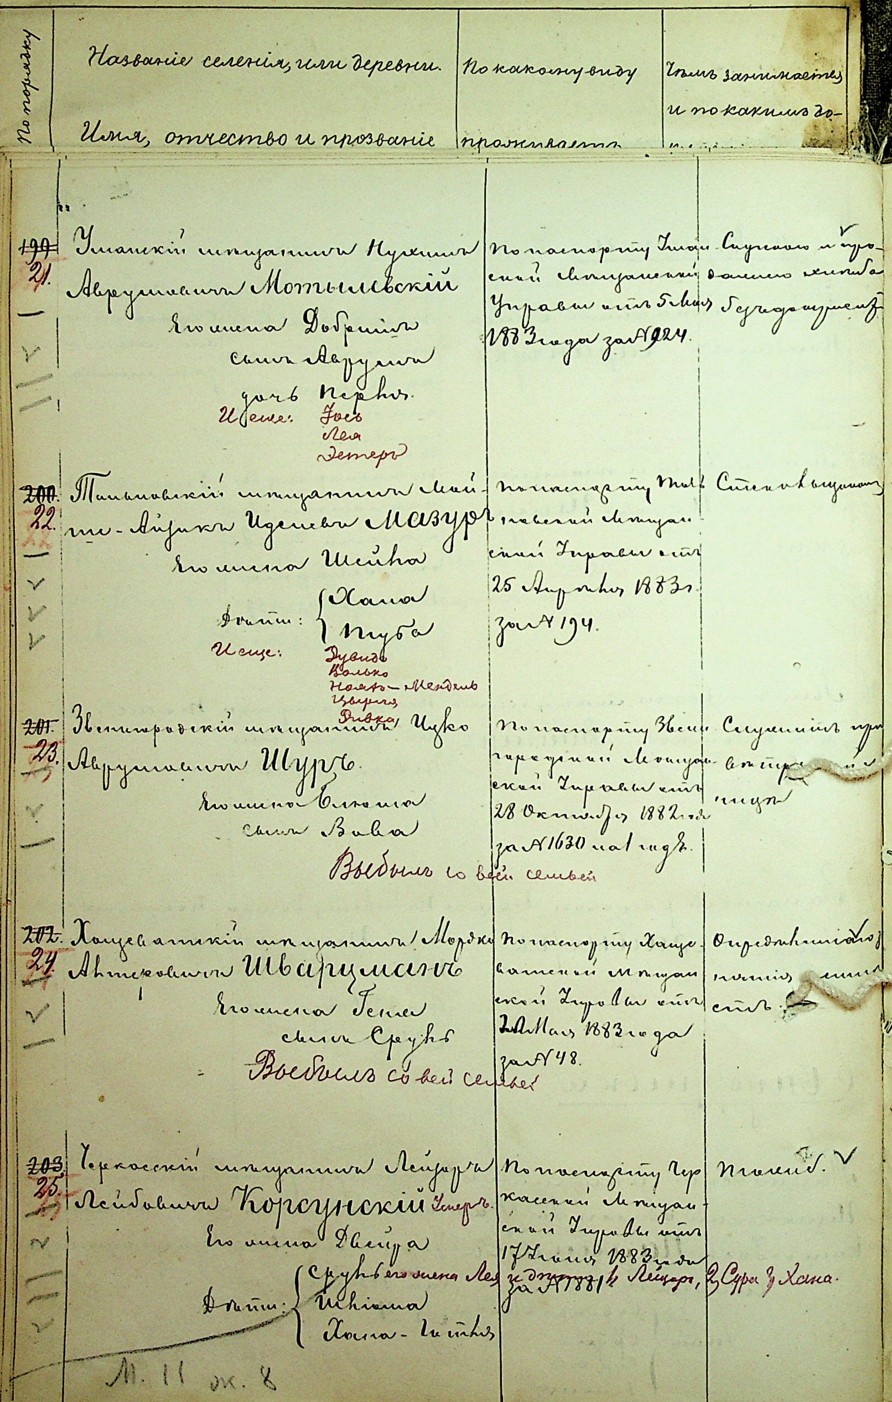 По порядку
Названіе селенія, или деревни.
Имя, отчество и прозваніе
По какому виду
проживаетъ
Чѣмъ занимается
и по какимъ до-
199
21.
Уманскій мѣщанинъ Нухимъ
Аврумовичъ Мотылевскій
Его жена Добришъ
сынъ Аврумъ
дочь Перля.
И еще: Іось
Лея
Эстеръ
По паспорту Уман-
ской Мѣщанской
Управы отъ 5 Мая
1883 года за № 924.
Служитъ и про-
200.
22.
Тальновскій мѣщанинъ Мой-
ше-Айзикъ Иделевъ Мазуръ
Его жена Шейна
Дѣти: Хана
Туба
И еще: Дувидъ
Волько
Мендель
Цырля
Ривка
По паспорту Таль-
новской Мѣщан-
ской Управы отъ
25 Апрѣля 1883 г.
за № 194.
201.
23.
Звенигородскій мѣщанинъ Ицко
Аврумовичъ Шуръ.
Его жена Блюма
сынъ Вова
Выбылъ со всей семьей
По паспорту Звени-
городской Мѣщан-
ской Управы отъ
28 Октября 1882 года
за № 1630 на 1 годъ.
Служитъ при
202.
24.
Хащеватскій мѣщанинъ Мордко
Шварцманъ
Его жена Геня
сынъ Сруль
Выбылъ со всей семьей
По паспорту Хаще-
ватской Мѣщан
ской Управы отъ
Мая 1883 года
за № 48.
203.
25.
Черкасскій мѣщанинъ Лейзоръ
Лейбовичъ Корсунскій Умеръ.
Его жена Двейра
Дѣти: Сруль его жена Лея и дѣти 1, Лейзоръ, 2, Сура 3, Хана.
Хана-Гитля
По паспорту Чер
касской Мѣщан-
ской Управы отъ
17 Іюня 1883 года
за № 1881
М. 11 ж. 8